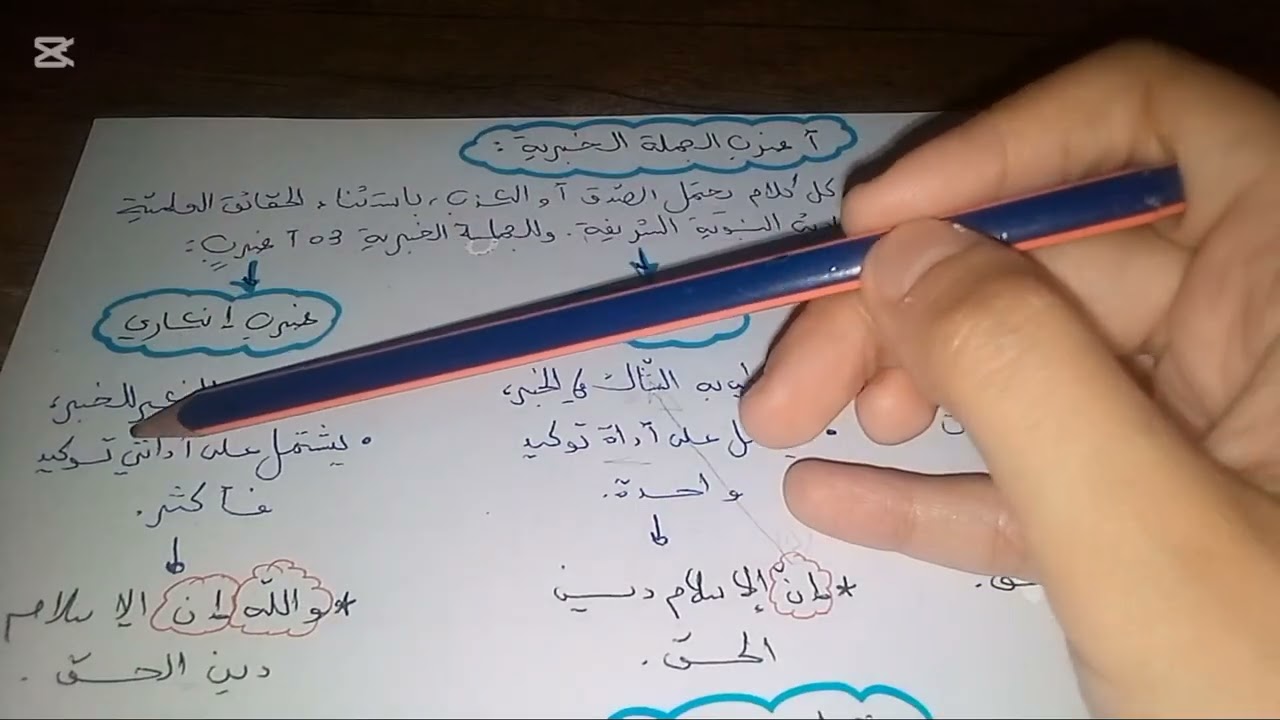 أضرب الجملة الخبرية :
كل كلام يحتمل الصّدق أو الكذب، باستثناء الحقائق العلميّة
النبوية الشريفة. والجملة الخبرية 03 أضرب:
ضرب إنكاري
به الشّاك في الخبر،
للخبر،
على أداة توكيد
واحدة.
• يشتمل على أداتي توكيد
فأكثر.
* إنّ الإسلام دين
الحقّ.
* والله إن الإسلام
دين الحقّ.